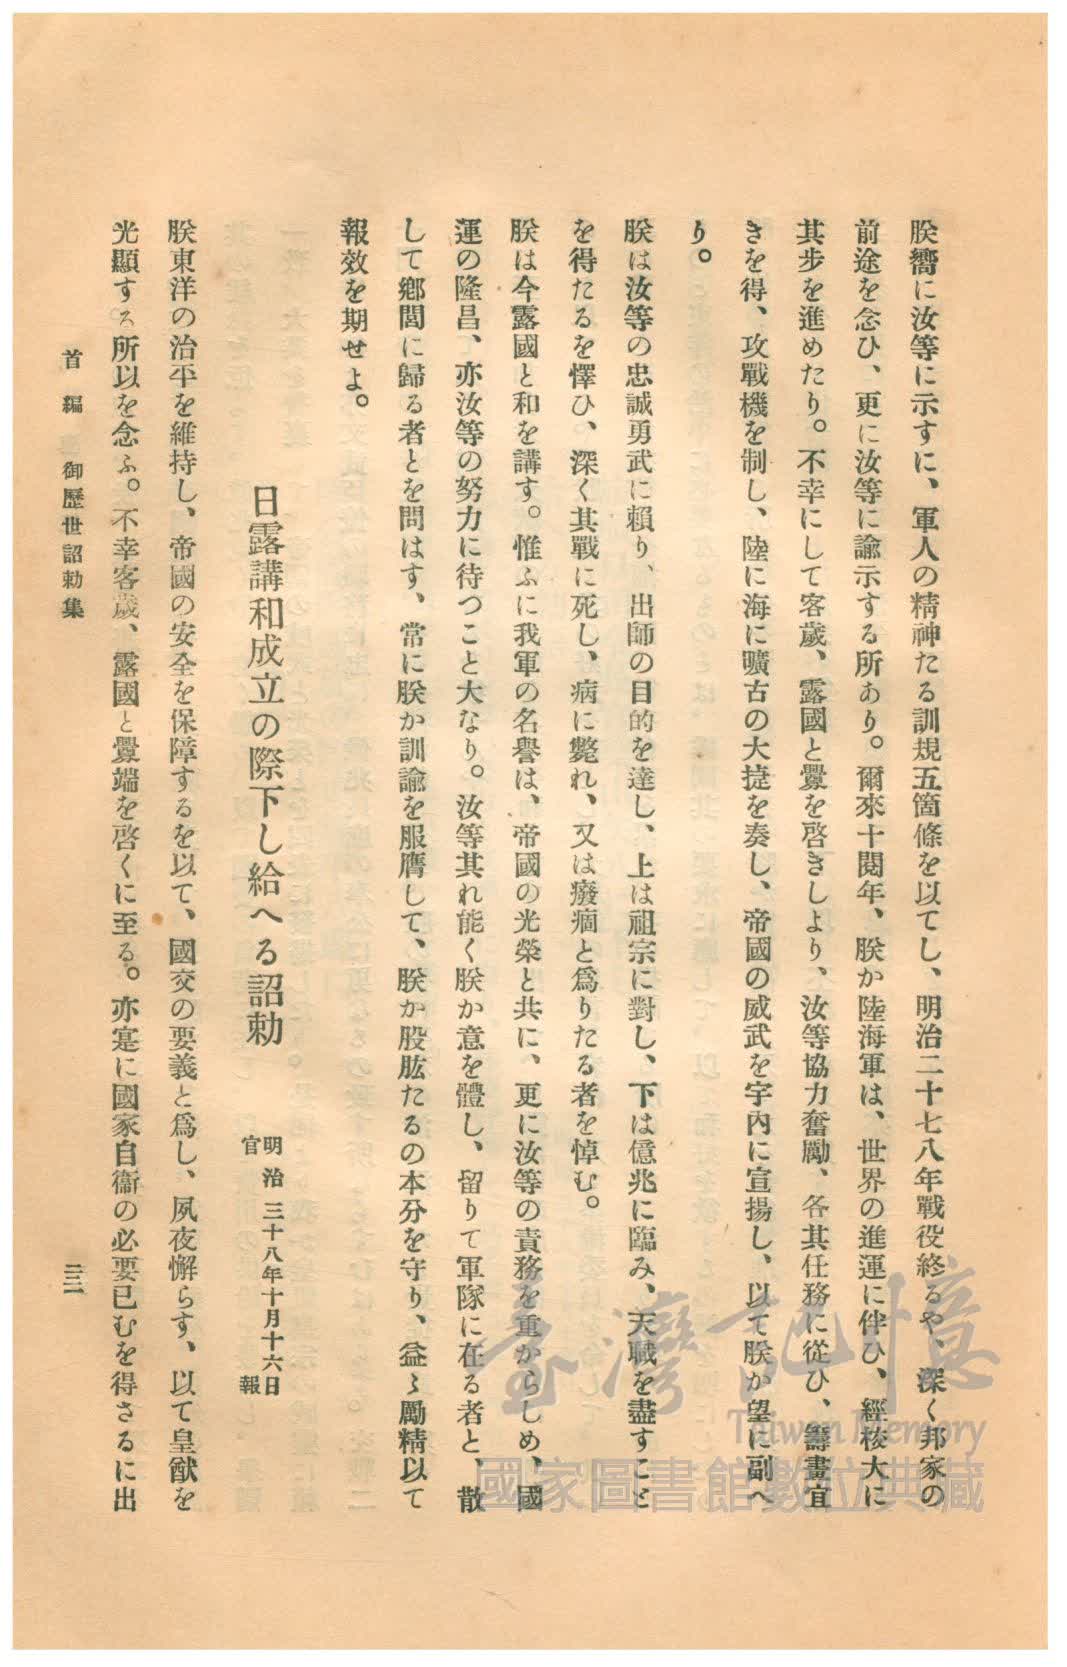 朕嚮に汝等に示すに、軍人の精神たる訓規五箇條を以てし、明治二十七八年戰役終るや、深く邦家の
前途を念ひ、更に汝等に諭示する所あり。爾來十閱年、朕か陸海軍は、世界の進運に伴ひ、經棱大に
其步を進めたり。不幸にして客歲、露國と釁を啓きしより、汝等協力奮勵、各其任務に從ひ、籌畫宜
きを得、攻戰機を制し、陸に海に曠古の大捷を奏し、帝國の威武を宇內に宣揚し、以て朕か望に副へ
り。
朕は汝等の忠誠勇武に賴り、出師の目的を達し、上は祖宗に對し、下は億兆に臨み、天職を盡すこと
を得たるを懌ひ、深く其戰に死し、病に斃れ、又は癈痼と爲りたる者を悼む。
朕は今露國と和を講す。惟ふに我軍の名譽は、帝國の光榮と共に、更に汝等の責務を重からしめ、國
運の隆昌、亦汝等の努力に待つこと大なり。汝等其れ能く朕か意を體し、留りて軍隊に在る者と、散
して鄕閭に歸る者とを問はす、常に朕か訓諭を服膺して、朕か股肱たるの本分を守り、益〻勵精以て
報效を期せよ。
日露講和成立の際下し給へる詔勅
明治三十八年十月十六日
官報
朕東洋の治平を維持し、帝國の安全を保障するを以て、國交の要義と爲し、夙夜懈らす、以て皇猷を
光顯する所以を念ふ。不幸客歲、露國と釁端を啓くに至る。亦寔に國家自衞の必要已むを得さるに出
首編 御歷世詔勅集
三三
臺灣記憶
Taiwan Memory
國家圖書館數位典藏